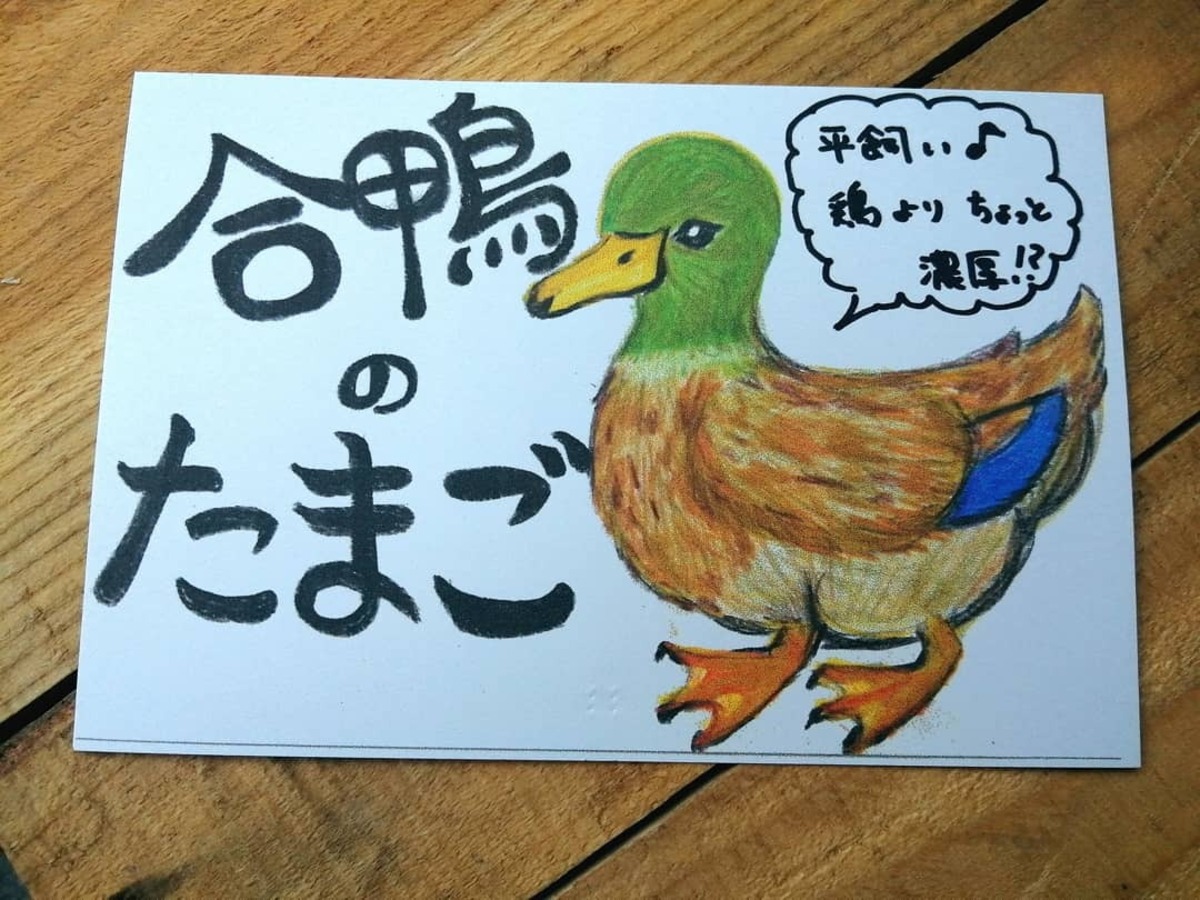 合鴨
の
たまご
平飼い♪
鶏より ちょっと
濃厚!?